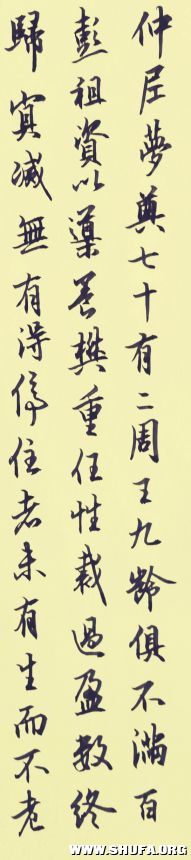 仲尼夢奠七十有二周王九齡俱不滿百
彭祖資以導養樊重任性裁過盈數終
歸冥滅無有得停住者未有生而不老
WWW.SHUFA.ORG